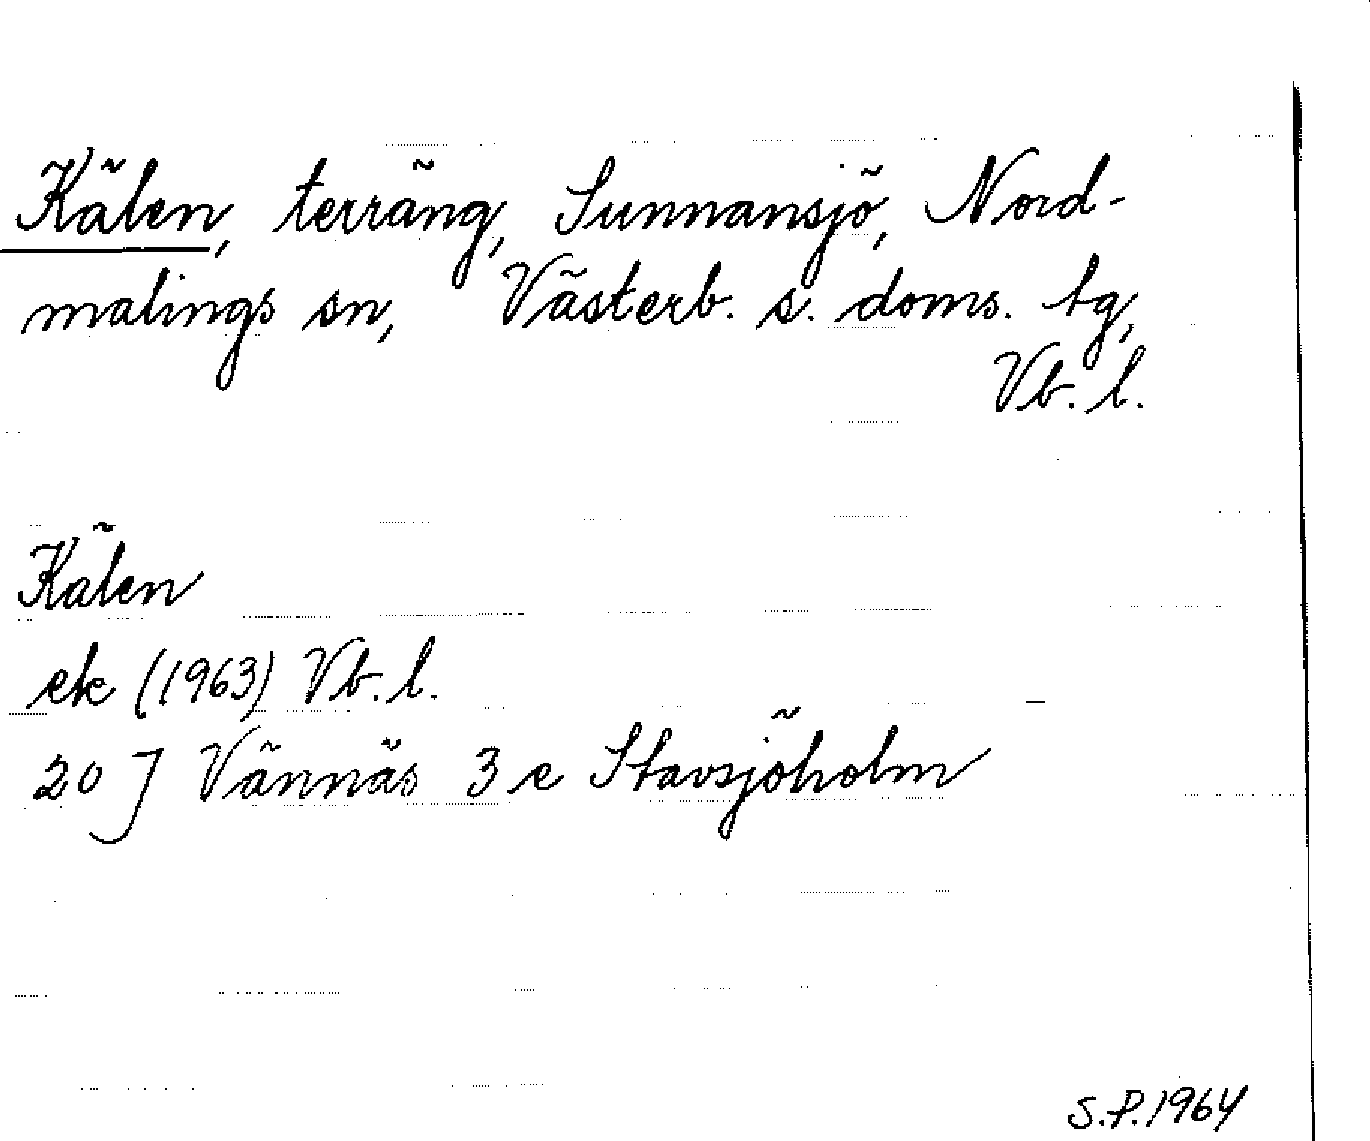 Kälen, terräng, Sunnansjö, Nord-
malings sn, Västerb. s. doms. tg,
Vb. l.
Kälen
ek (1963) Vb. l.
20 J Vännäs 3 e Stavsjöholm
S.P. 1964